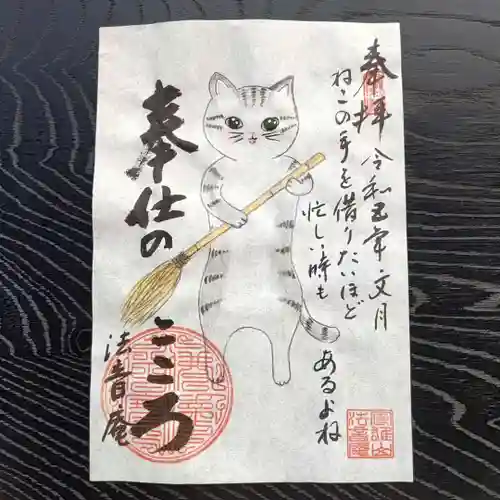 奉拝 令和五年文月
ねこの手を借りたいほど
忙しい時も
あるよね
奉仕の
こころ
法音庵